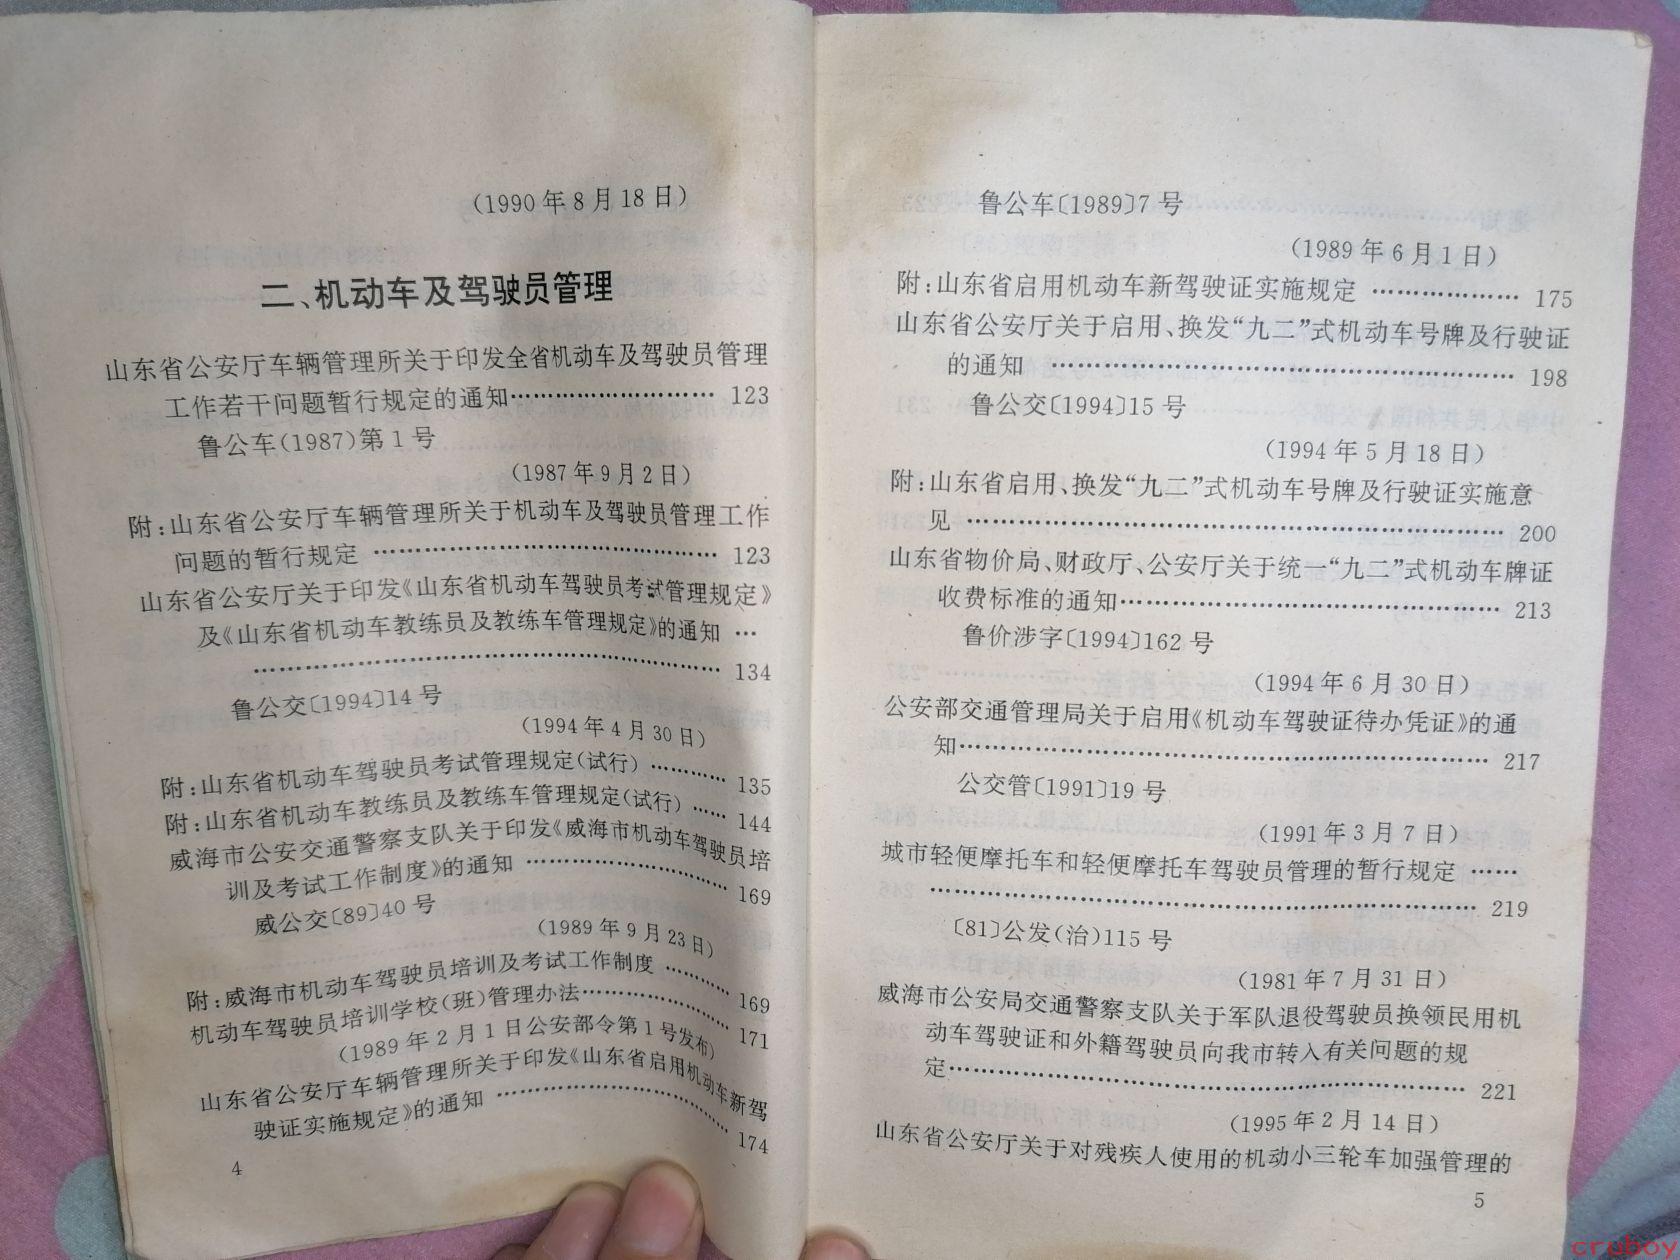 (1990年8月18日)
二、机动车及驾驶员管理
山东省公安厅车辆管理所关于印发全省机动车及驾驶员管理
工作若干问题暂行规定的通知…………………… 123
鲁公车(1987)第1号
(1987年9月2日)
附:山东省公安厅车辆管理所关于机动车及驾驶员管理工作
问题的暂行规定 ………………………………… 123
山东省公安厅关于印发《山东省机动车驾驶员考试管理规定》
及《山东省机动车教练员及教练车管理规定》的通知 …
……………………………………………… 134
鲁公交〔1994〕14号
(1994年4月30日)
附:山东省机动车驾驶员考试管理规定(试行) ………… 135
附:山东省机动车教练员及教练车管理规定(试行) …… 144
威海市公安交通警察支队关于印发《威海市机动车驾驶员培
训及考试工作制度》的通知 ……………………… 169
威公交〔89〕40号
(1989年9月23日)
附:威海市机动车驾驶员培训及考试工作制度 ………… 169
机动车驾驶员培训学校(班)管理办法……………… 171
(1989年2月1日公安部令第1号发布)
山东省公安厅车辆管理所关于印发《山东省启用机动车新驾
驶证实施规定》的通知 ………………………… 174
4
鲁公车〔1989〕7号
(1989年6月1日)
附:山东省启用机动车新驾驶证实施规定 ……………… 175
山东省公安厅关于启用、换发“九二”式机动车号牌及行驶证
的通知 ……………………………………………… 198
鲁公交〔1994〕15号
(1994年5月18日)
附:山东省启用、换发“九二”式机动车号牌及行驶证实施意
见 ……………………………………………………… 200
山东省物价局、财政厅、公安厅关于统一“九二”式机动车牌证
收费标准的通知……………………………………… 213
鲁价涉字〔1994〕162号
(1994年6月30日)
公安部交通管理局关于启用《机动车驾驶证待办凭证》的通
知……………………………………………………… 217
公交管〔1991〕19号
(1991年3月7日)
城市轻便摩托车和轻便摩托车驾驶员管理的暂行规定 ……
………………………………………………………… 219
〔81〕公发(治)115号
(1981年7月31日)
威海市公安局交通警察支队关于军队退役驾驶员换领民用机
动车驾驶证和外籍驾驶员向我市转入有关问题的规
定……………………………………………………… 221
(1995年2月14日)
山东省公安厅关于对残疾人使用的机动小三轮车加强管理的
5
cruboy